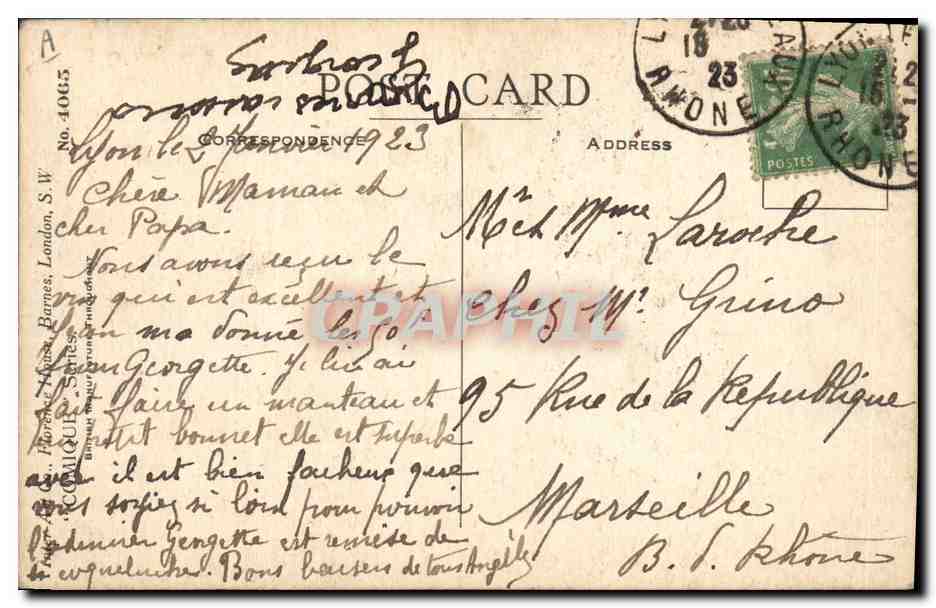 A
Georgette
POST CARD
CORRESPONDENCE
ADDRESS
No. 4065
"COMIQUE" Series.
Florence House, Barnes, London, S. W
BRITISH MANUFACTURE THROUGHOUT
Lyon le 2 Janvier 1923
Chère Maman et
cher Papa.
Nous avons reçu le
vin qui est excellent et
Léon ma donné les 20f
pour Georgette. Je lui ai
fait faire un manteau et
un petit bonnet elle est superbe
avec il est bien facheux que
vous soyiez si loin pour pouvoir
l'admirer Georgette est remise de
sa coqueluche. Bons baisers de tous Angèle
Mr et Mme Laroche
chez Mr Grino
95 Rue de la Republique
Marseille
B. d. Rhône
POSTES
RHONE
23
LYON
RHONE
23
CPARAMA CPAPHIL